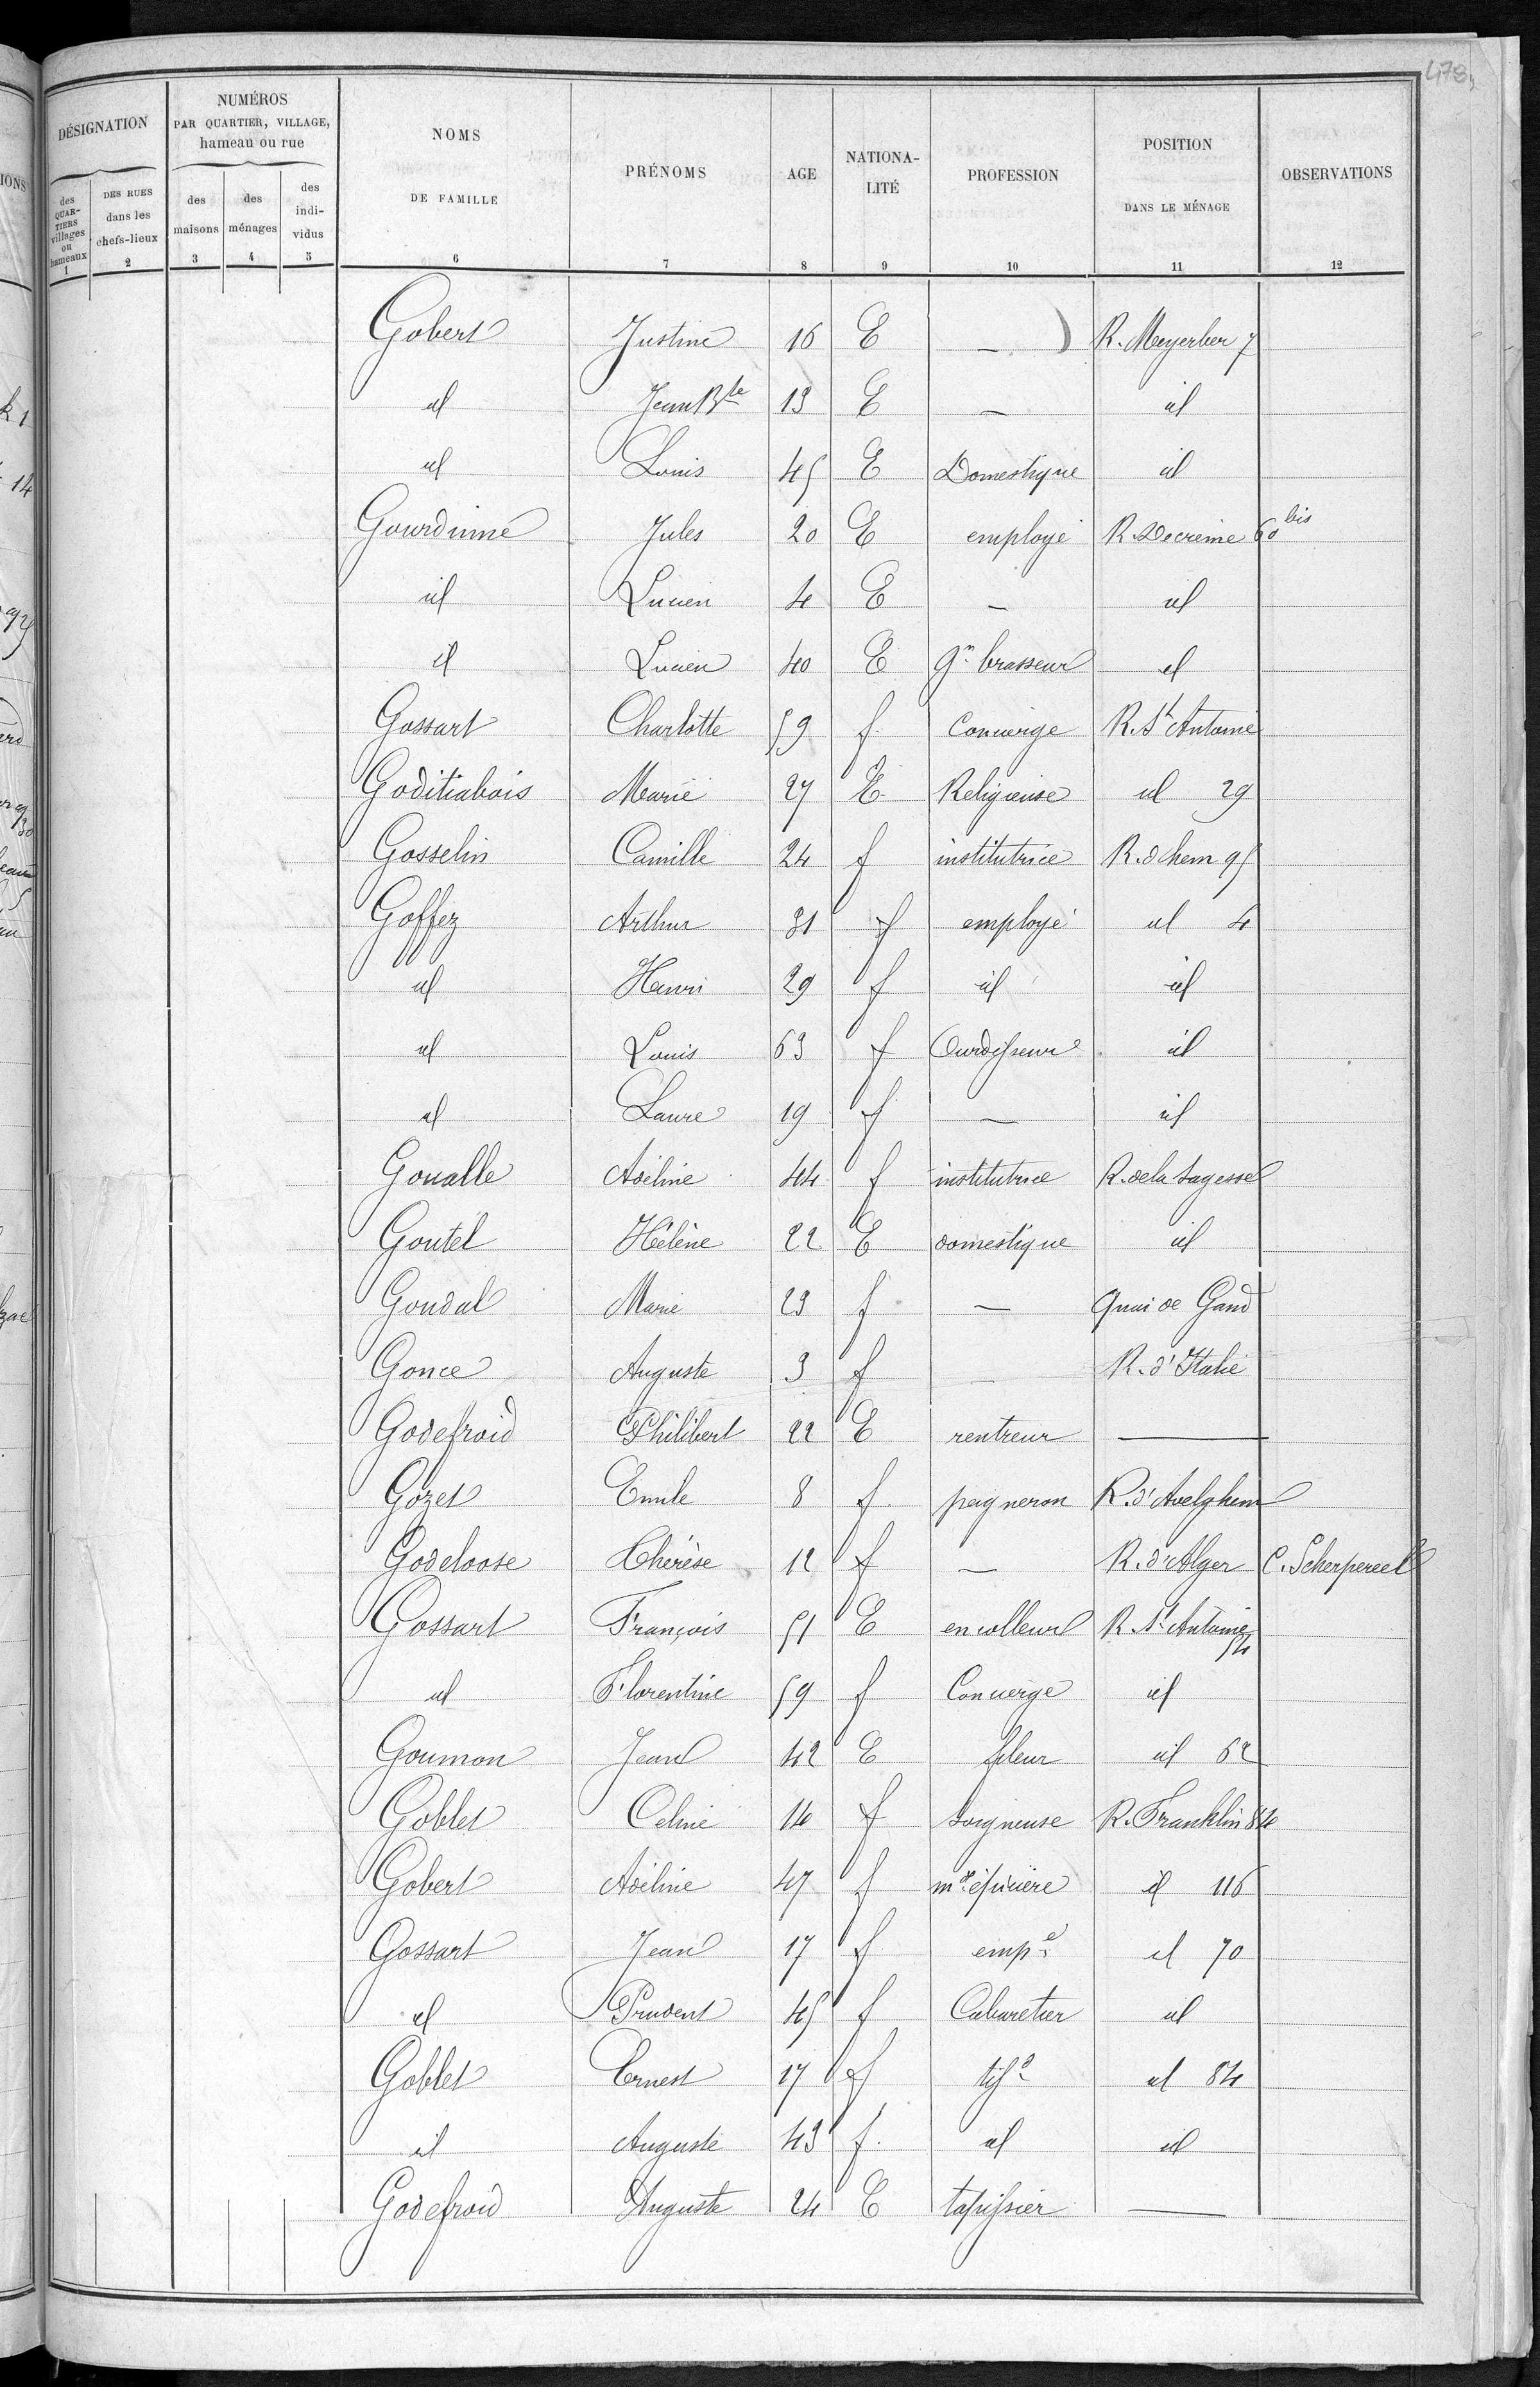 478,
DÉSIGNATION | NUMÉROS PAR QUARTIER, VILLAGE, hameau ou rue | NOMS DE FAMILLE | PRÉNOMS | AGE | NATIONALITÉ | PROFESSION | POSITION DANS LE MÉNAGE | OBSERVATIONS
des QUARTIERS villages ou hameaux | DES RUES dans les chefs-lieux | des maisons | des ménages | des individus
1 | 2 | 3 | 4 | 5 | 6 | 7 | 8 | 9 | 10 | 11 | 12
Gobert | Justine | 16 | E | — | R. Meyerber 7
id | Jean Bte | 13 | E | — | id
id | Louis | 45 | E | Domestique | id
Gourdinne | Jules | 20 | E | employé | R. Decrème 60 bis
id | Lucien | 4 | E | — | id
id | Lucien | 40 | E | gn brasseur | id
Gossart | Charlotte | 59 | f | Concierge | R. St Antoine
Goditiabois | Marie | 27 | E | Religieuse | id 29
Gosselin | Camille | 24 | f | institutrice | R. d'hem 95
Goffez | Arthur | 31 | f | employé | id 4
id | Henri | 29 | f | id | id
id | Louis | 63 | f | Ourdisseur | id
id | Laure | 19 | f | — | id
Goualle | Adéline | 44 | f | institutrice | R. de la Sagesse
Goutel | Hélène | 22 | E | domestique | id
Goudal | Marie | 23 | f | — | Quai de Gand
Gonce | Auguste | 3 | f | — | R. d'Italie
Godefroid | Philibert | 22 | E | rentreur | —
Gozet | Emile | 8 | f | peigneron | R. d'Avelghem
Godeloose | Thérèse | 12 | f | — | R. d'Alger | C. Scherpereel
Gossart | François | 51 | E | encolleur | R. St Antoine 54
id | Florentine | 59 | f | Concierge | id
Goumon | Jean | 42 | E | fileur | id 62
Goblet | Celine | 14 | f | soigneuse | R. Franklin 84
Gobert | Adéline | 47 | f | mde épicière | id 116
Gossart | Jean | 17 | f | empé | id 70
id | Prudent | 45 | f | Cabaretier | id
Goblet | Ernest | 17 | f | tisd | id 84
id | Auguste | 43 | f | id | id
Godefroid | Auguste | 24 | E | tapissier | —